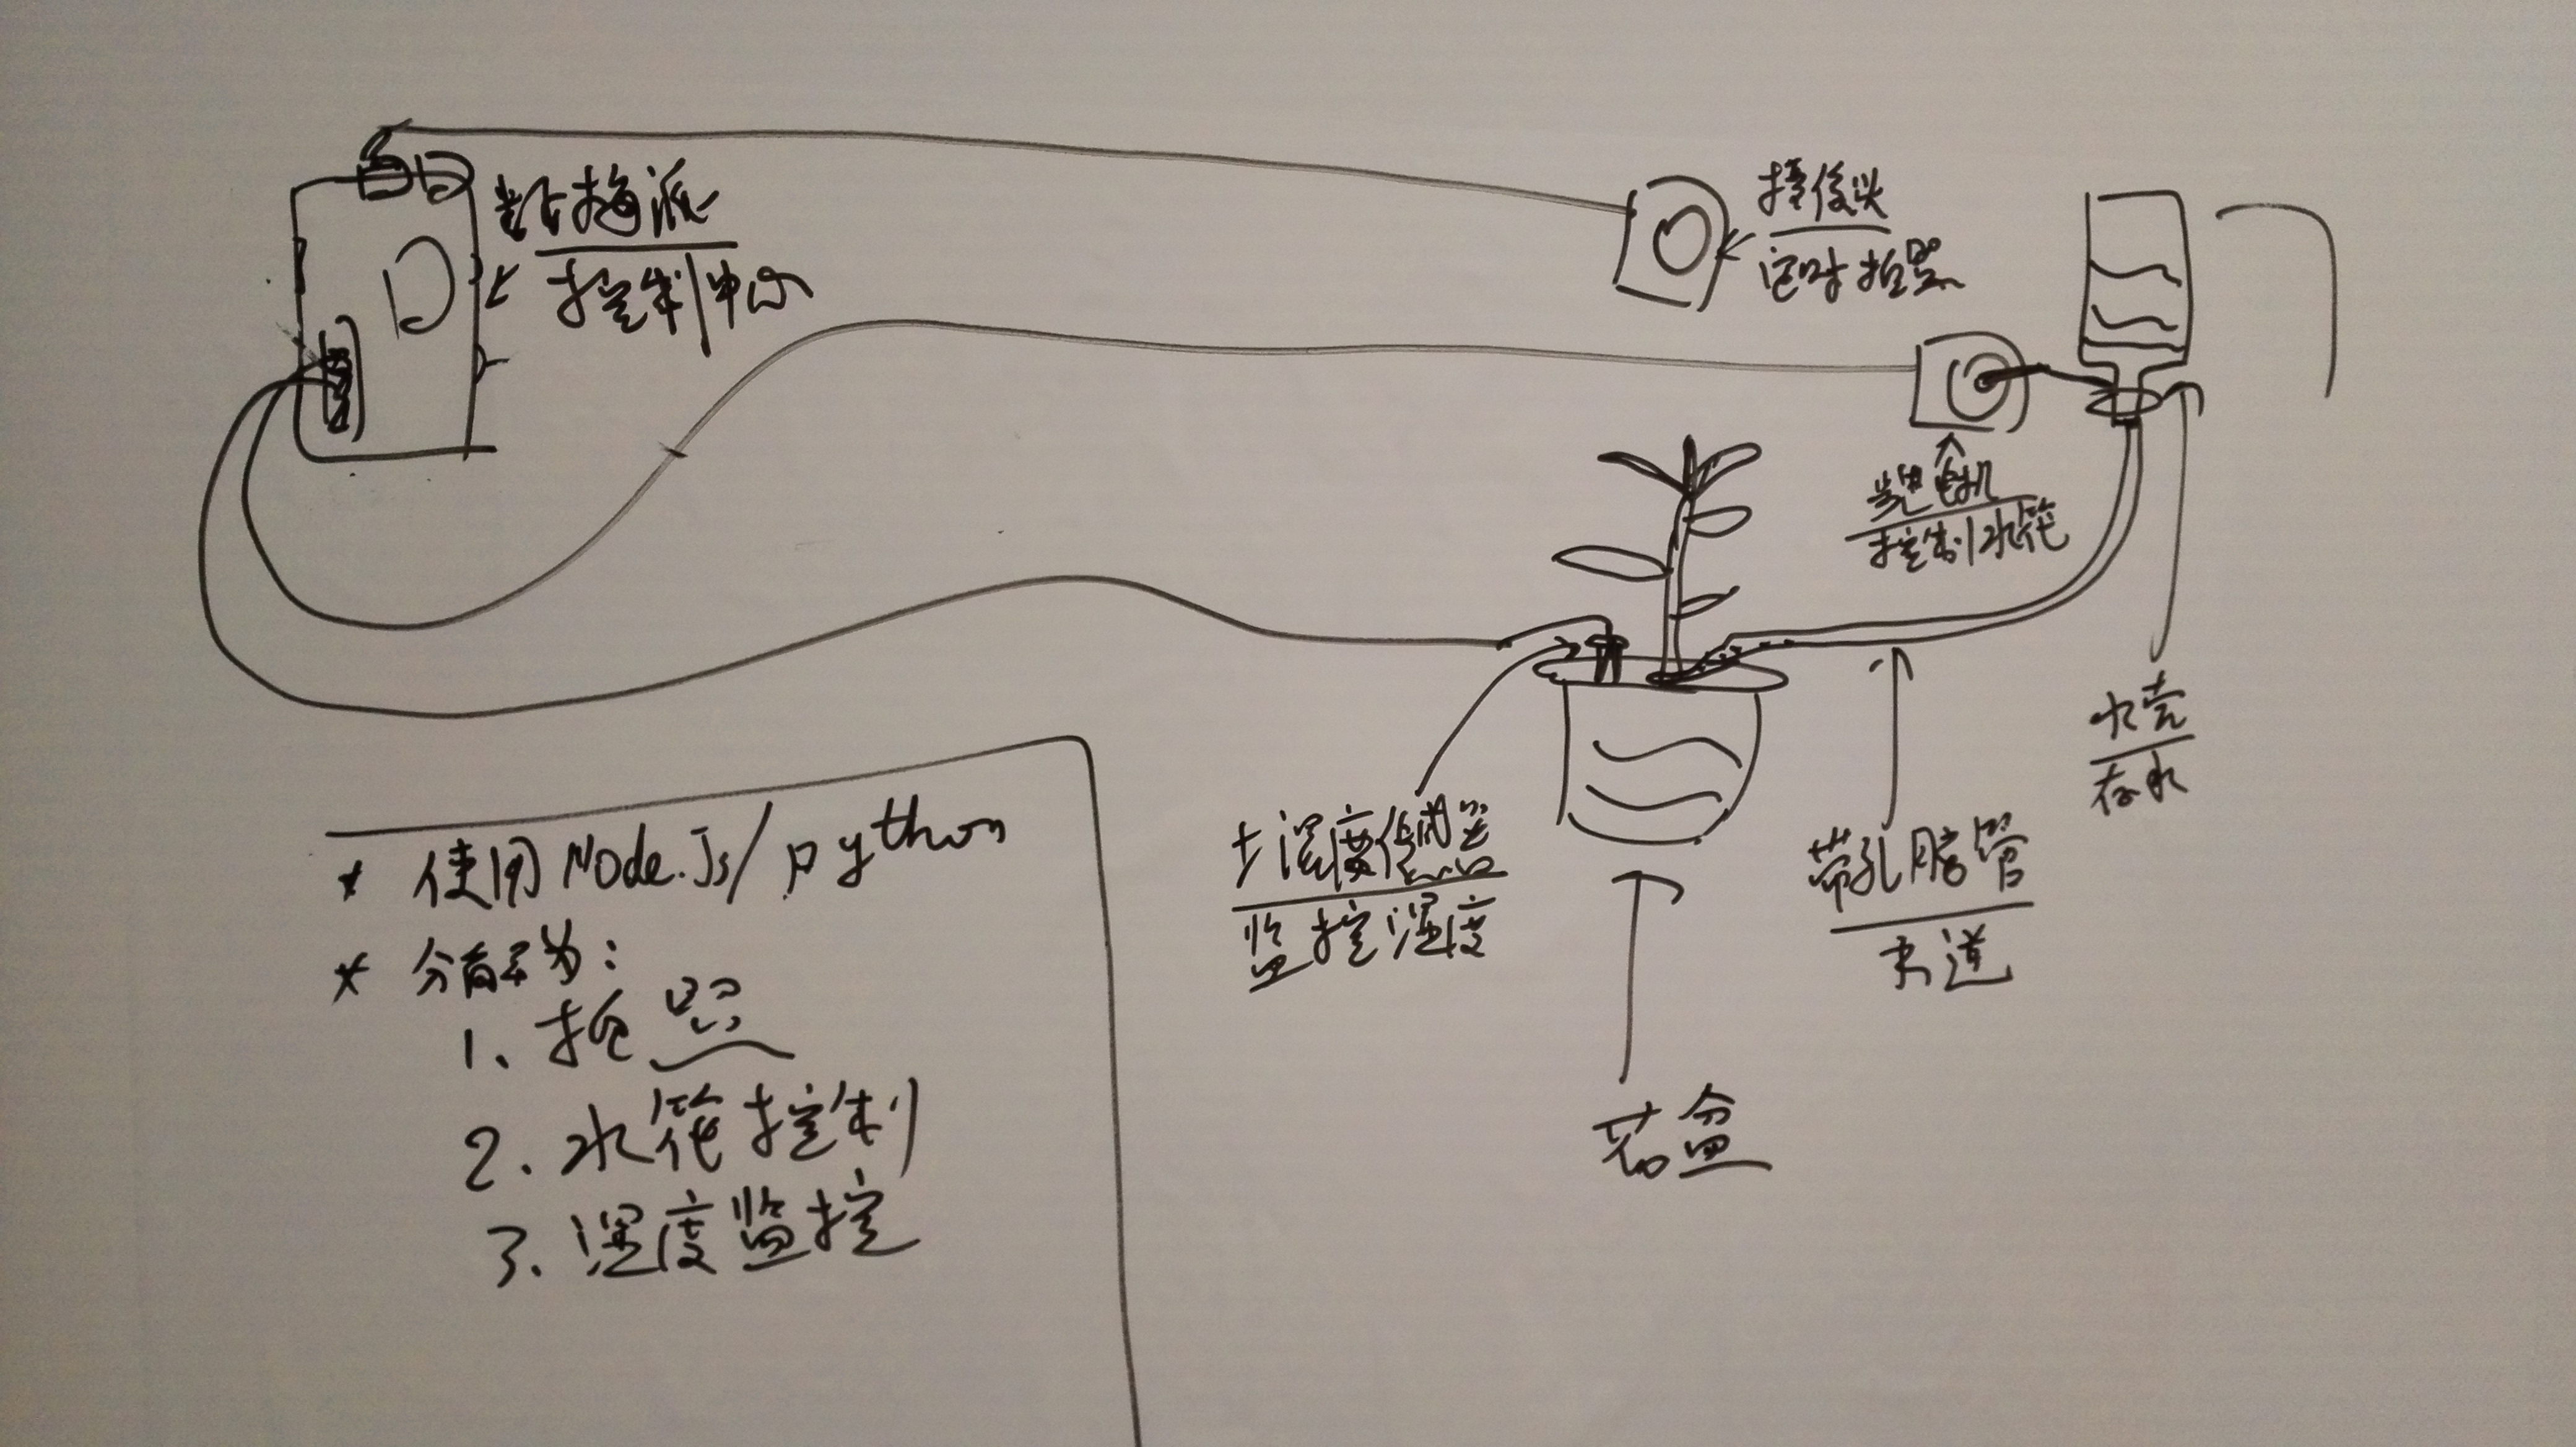 树梅派
控制中心
摄像头
定时拍照
步进电机
控制水管
水壳
存水
土湿度传感器
监控湿度
带孔胶管
花盆
* 使用 Node.Js/python
* 分为:
1. 拍照
2. 水管控制
3. 湿度监控